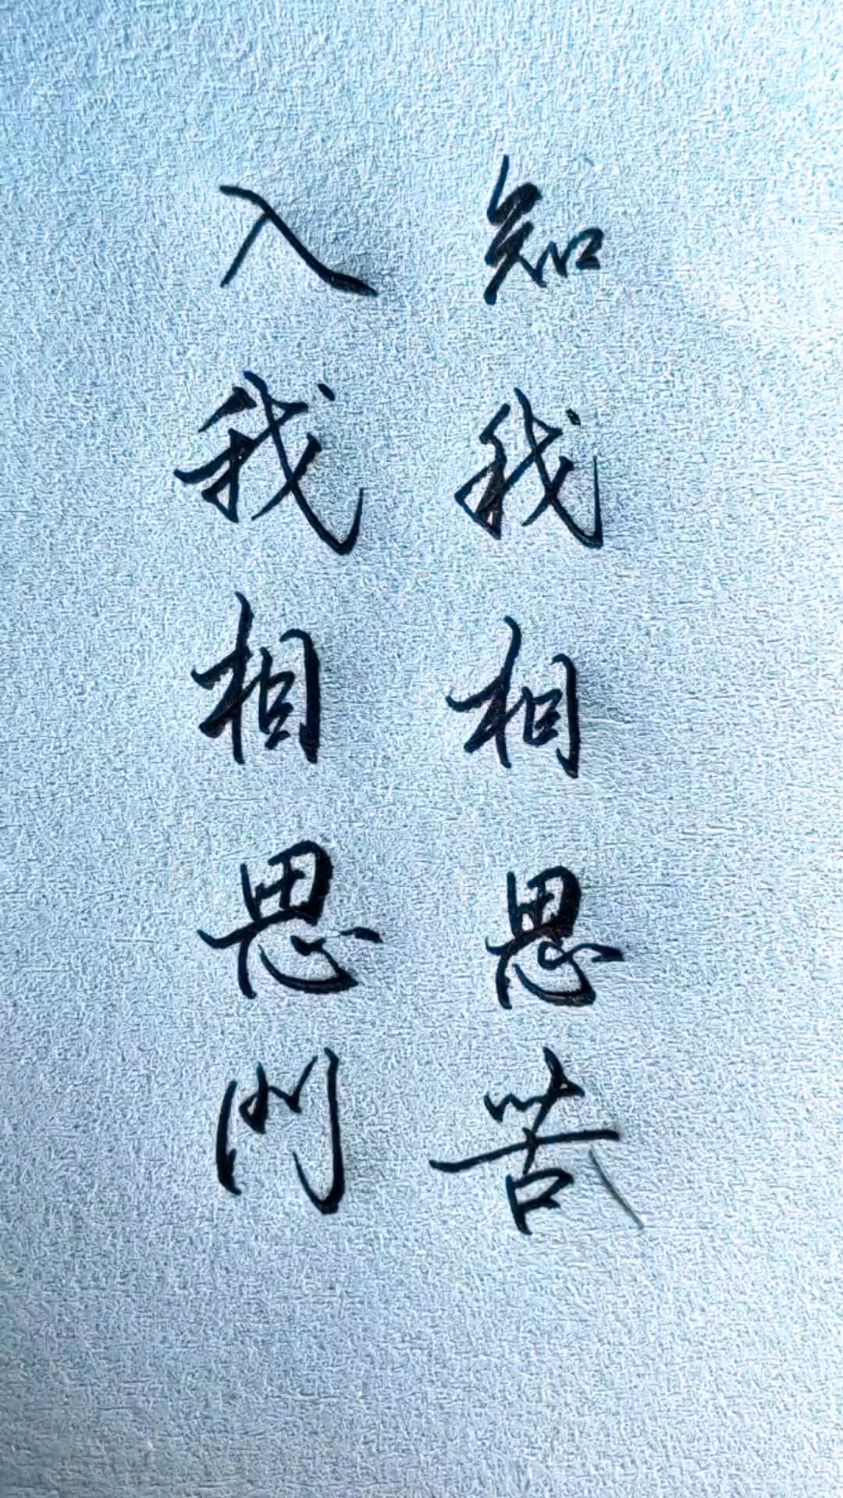 入我相思門
知我相思苦